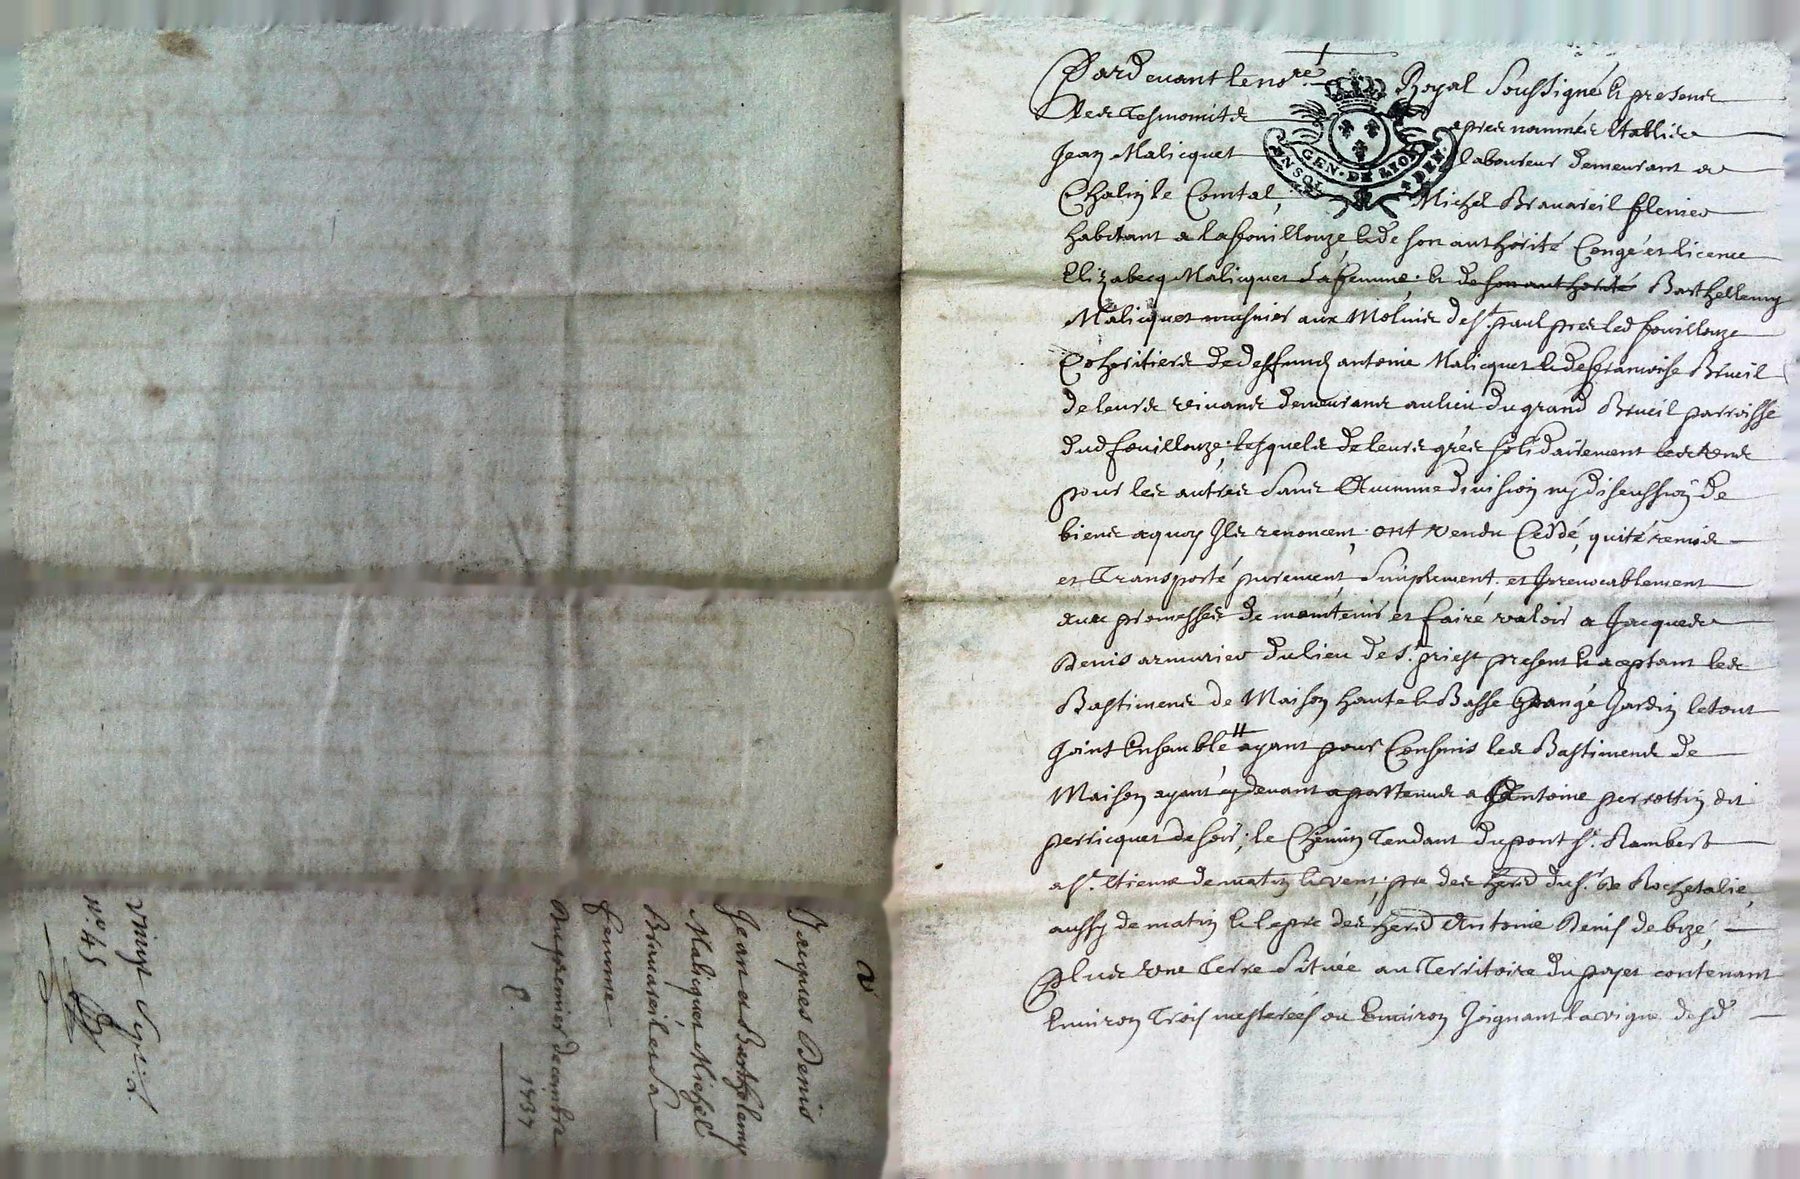 Pardevant le no.re Royal Soussigné & presens
les tesmoints apres nommés establis
Jean Malicquet laboureur demeurant a
Chalin le Comtal, Michel Bravareil
habitant a lafouillouze, & de son authorité Congé et licence
Elizabecq Malicquet sa femme, & de son authorité Barthellemy
Malicquet musnier aux Molins de St. paul pres led fouillouze
Cohéritiers de deffunq antoine Malicquet & de francoise Brueil
de leurs vivans demeurans au lieu du grand Brueil parroisse
dud fouillouze, lesquels de leurs grés solidairement
pour les autres sans Aucunne division ny discussion de
biens aquoy Ils renoncent, ont vendu Ceddé, quité remis
et Transporté purement, Simplement, et Irrevocablement
avec promesses de maintenir et faire valoir a Jacques
Denis armurier du lieu de St. priest present & aceptant les
Bastimens de Maison haute & Basse Grange Jardin le tout
Joint Ensemblé, ayant pour Confins les Bastimens de
Maison ayant cy devant apartenus a Antoine perrottin dit
perricquet de soir, le Chemin Tendant du pont St. Rambert
a St. Etienne de matin & vent, pré des hers du Sr. de Rochetalié,
aussy de matin & le pre des hers Antoine Denis de bizé,
Plus une Terre Située au Territoire du payet contenant
Environ Trois mesterées ou Environ Joignant la vigne desd
GEN. DE LYON
UN SOL
DEN.
Jacques Denis
Jean et Barthelemy
Malicquet, Michel
Bravareil et sa
femme
Du premier decembre
1737
vingt
No. 45